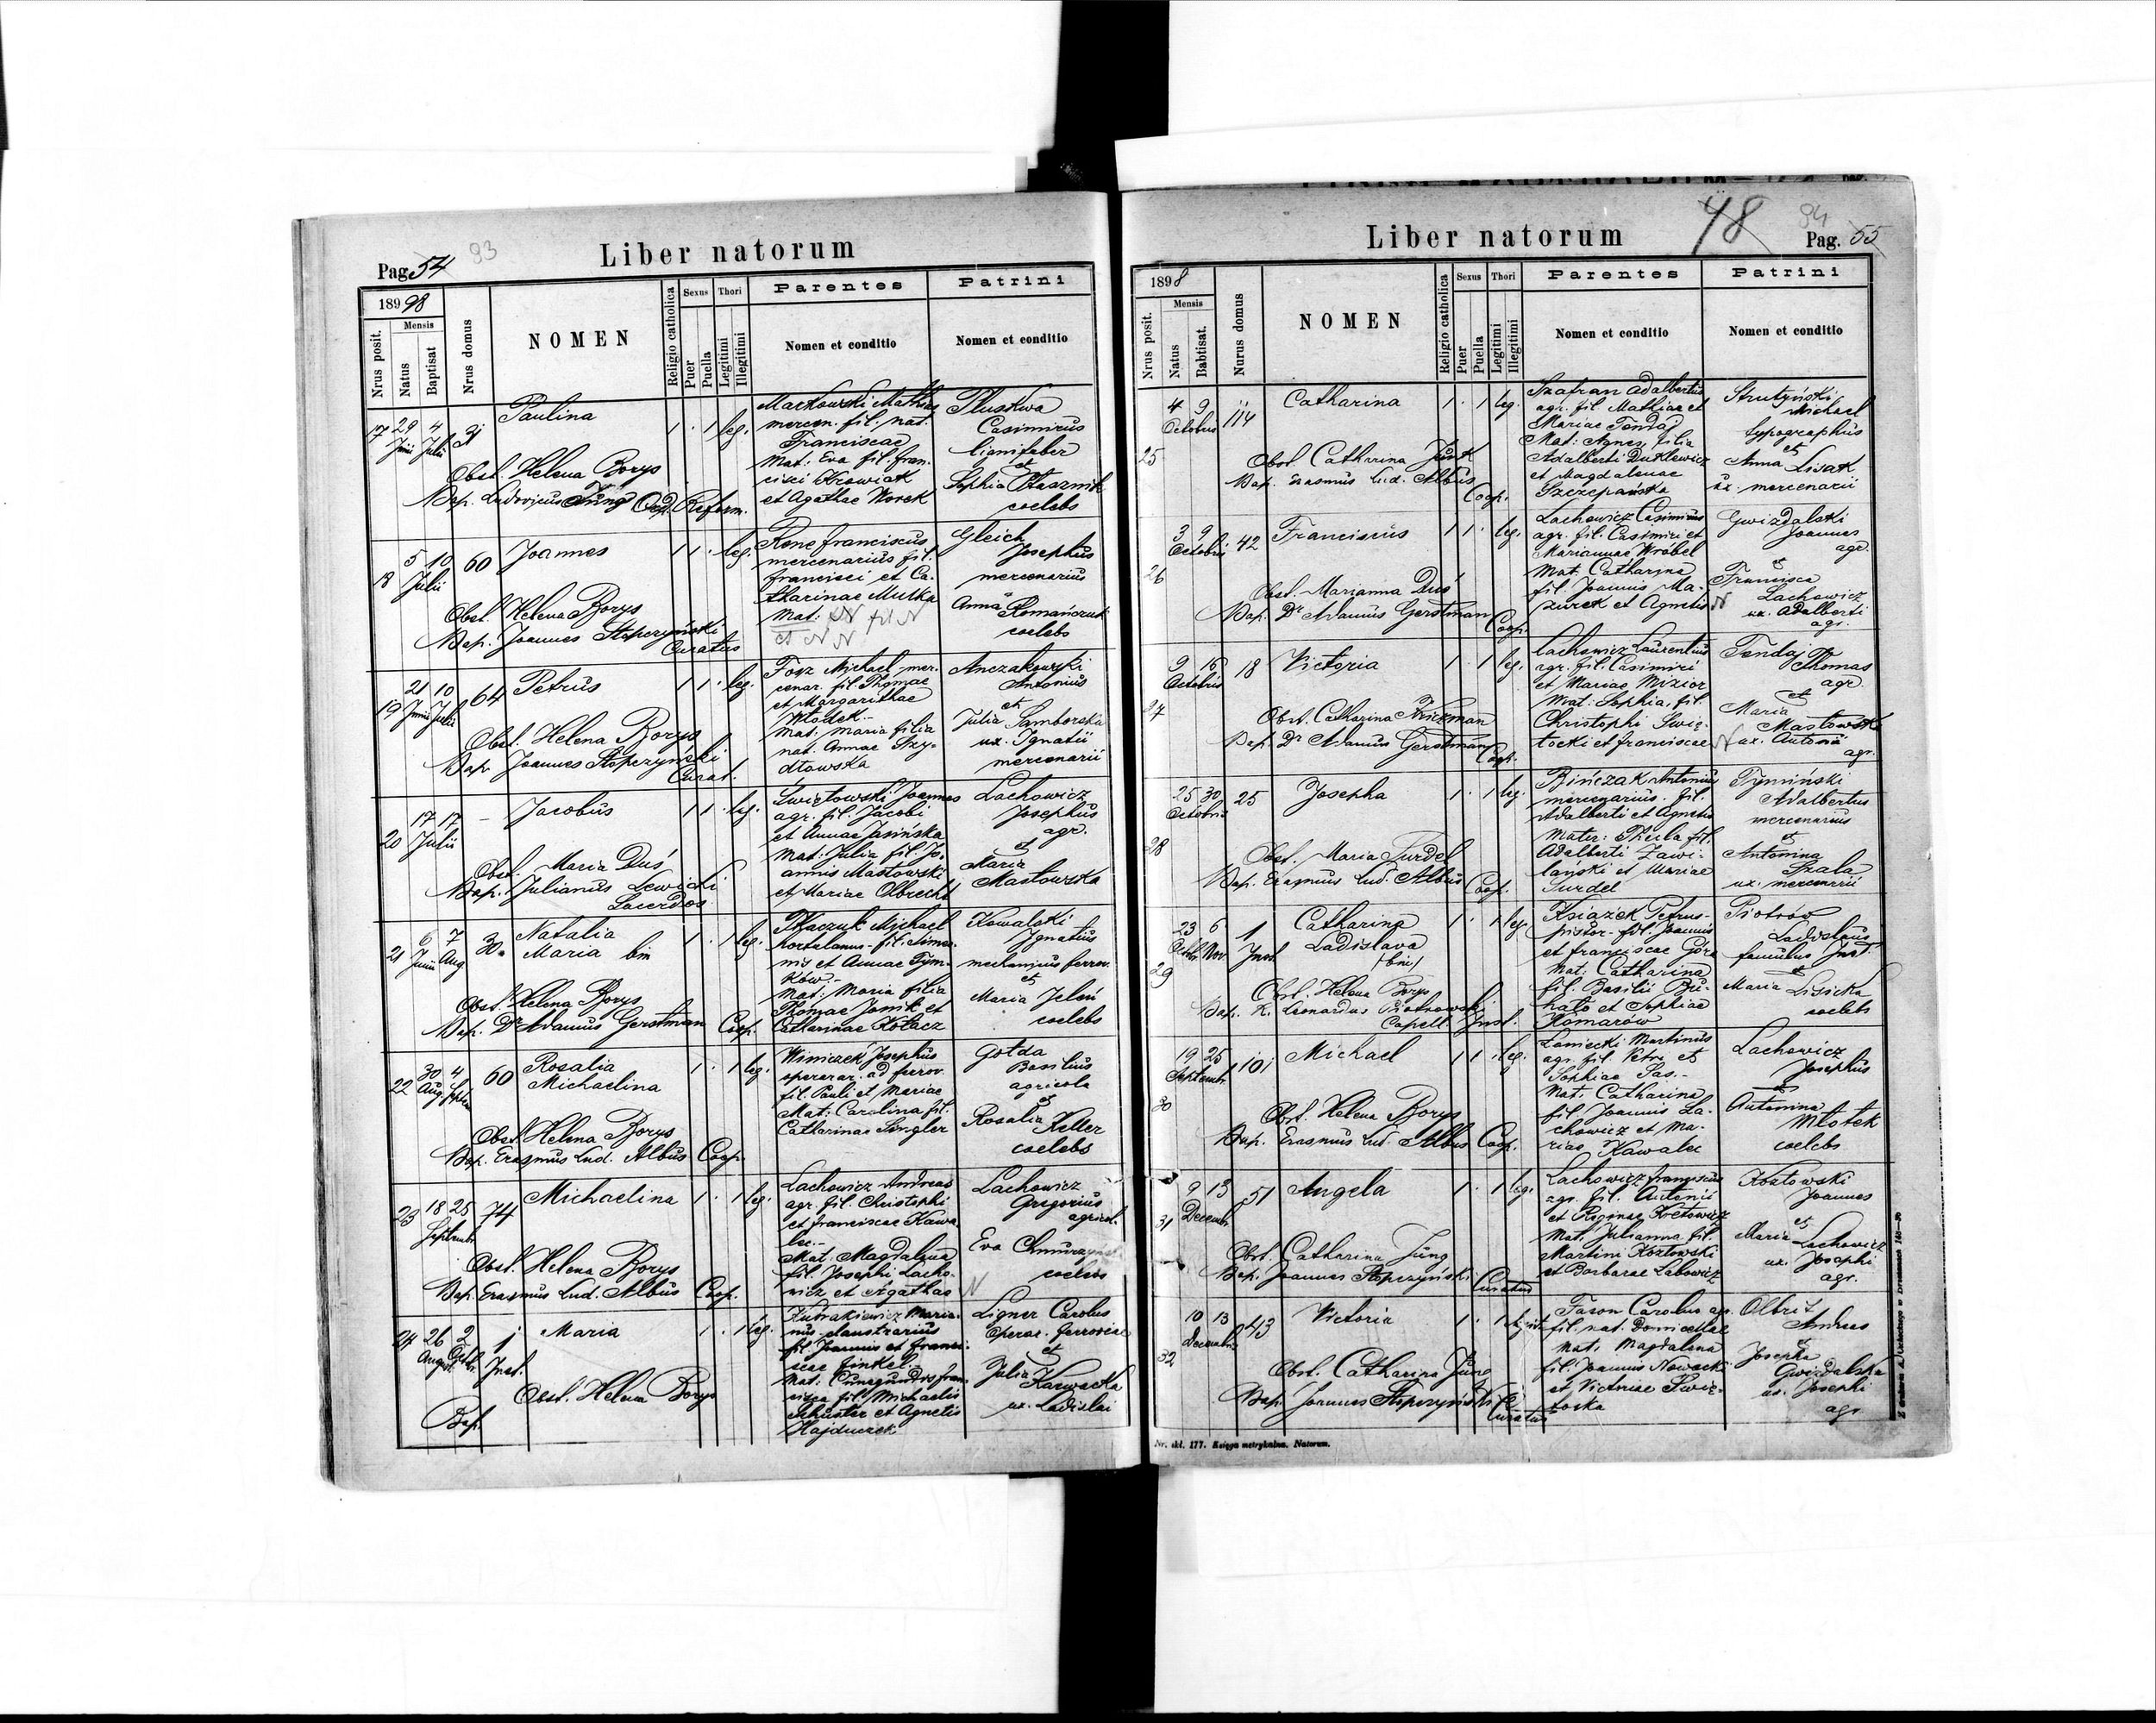 Liber natorum
Pag. 54 93
1898
Nrus posit.
Mensis
Natus
Baptisat
Nrus domus
NOMEN
Religio catholica
Sexus
Puer
Puella
Thori
Legitimi
Illegitimi
Parentes
Nomen et conditio
Patrini
Nomen et conditio
17 29 Junii 4 Julii 31
Paulina
1 . 1 leg.
Obst. Helena Borys
Bap. Ludovicus Jüng Ord. Reform.
Markowski Mathias
mercen. fil. nat.
Franciscae
Mat: Eva fil. Fran-
cisci Krowiak
et Agathae Worek
Pluskwa
Casimirus
lignifaber
et
Sophia Ptasznik
coelebs
18 5 10 Julii 60
Joannes
1 1 . leg.
Obst. Helena Borys
Bap. Joannes Stopczyński
Curatus
Kone Franciscus
mercenarius fil.
Francisci et Ca-
tharinae Mutka
Mat: N fil N
et N N
Gleich
Josephus
mercenarius
Anna Romańczuk
coelebs
19 21 Junii 10 Julii 64
Petrus
1 1 . leg.
Obst. Helena Borys
Bap. Joannes Stopczyński
Curat.
Michael mer-
cenar. fil. Thomae
et Margarithae
Włodek.-
Mat: Maria filia
nat. Annae Szy-
dłowska
Anczakowski
Antonius
et
Julia Samborska
ux. Ignatii
mercenarii
20 17 17 Julii -
Jacobus
1 1 . leg.
Obst. Maria Duś
Bap. Julianus Lewicki
Sacerdos
Swiętowski Joannes
agr. fil. Jacobi
et Annae Jasińska
Mat: Julia fil. Jo-
annis Masłowski
et Mariae Olbrecht
Lachowicz
Josephus
agr.
et
Maria
Masłowska
21 6 Junii 7 Aug. 30
Natalia
Maria bin
1 . 1 leg.
Obst. Helena Borys
Bap. Dr Adamus Gerstman Coop.
Tkaczuk Michael
hortulanus - fil. Simeo-
nis et Annae Tym-
ków.-
Mat: Maria filia
Thomae Janik et
Catharinae Kołacz
Kowalski
Ignatius
mechanicus ferrov.
et
Maria Jeleń
coelebs
22 30 Aug. 4 Septem 60
Rosalia
Michaelina
1 . 1 leg.
Obst. Helena Borys
Bap. Erasmus Lud. Albus Coop.
Winiczek Josephus
operarar. ad ferrov.
fil. Pauli et Mariae
Mat: Carolina fil.
Catharinae Sengler
Gołda
Basilius
agricola
et
Rosalia Keller
coelebs
23 18 25 Septembr 74
Michaelina
1 . 1 leg.
Obst. Helena Borys
Bap. Erasmus Lud. Albus Coop.
Lachowicz Andreas
agr. fil. Christophi
et Franciscae Kawa-
lec.-
Mat: Magdalena
fil. Josephi Lacho-
wicz et Agathae N
Lachowicz
Gregorius
agricol.
Eva
coelebs
24 26 August 2 Octbr. 1 Inst.
Maria
1 . 1 leg.
Obst. Helena Borys
Bap.
Maria-
nus claustrarius
fil. Joannis et Franci-
scae Finkel.-
Mat: Cunegundis Fran-
cisca fil. Michaelis
Schuster et Agnetis
Hajduczek
Ligner Carolus
operar. ferroviae
et
Julia Karwacka
ux. Ladislai
Liber natorum
48 94 Pag. 55
1898
Nrus posit.
Mensis
Natus
Babtisat.
Nurus domus
NOMEN
Religio catholica
Sexus
Puer
Puella
Thori
Legitimi
Illegitimi
Parentes
Nomen et conditio
Patrini
Nomen et conditio
25 4 9 Octobris 114
Catharina
1 . 1 leg.
Obst. Catharina Junk
Bap. Erasmus Lud. Albus Coop.
Szafran Adalbertus
agr. fil. Mathiae et
Mariae Tendaj
Mat: Agnes filia
Adalberti Dutkiewicz
et Magdalenae
Szczepańska
Strutyński
Michael
typographus
et
Anna Lisak
ux. mercenarii
26 3 9 Octobris 42
Franciscus
1 1 . leg.
Obst. Marianna Duś
Bap. Dr Adamus Gerstman Coop.
Lachowicz Casimirus
agr. fil. Casimiri et
Mariannae Wróbel
Mat. Catharina
fil. Joannis Ma-
zurek et Agnetis N
Gwizdalski
Joannes
agr.
et
Francisca
Lachowicz
ux. Adalberti
agr.
27 9 16 Octobris 18
Victoria
1 . 1 leg.
Obst. Catharina
Bap. Dr Adamus Gerstman Coop.
Lachowicz Laurentius
agr. fil. Casimiri
et Mariae Mizior
Mat: Sophia, fil.
Christophi Swię-
tocki et Franciscae N
Tendaj Thomas
agr.
et
Maria
Masłowska
ux. Antonii
agr.
28 25 30 Octobris 25
Josepha
1 . 1 leg.
Obst. Maria Turdel
Bap. Erasmus Lud. Albus Coop.
Bińczak Antonius
mercenarius. fil.
Adalberti et Agnetis
Mater: Thecla fil.
Adalberti Zawi-
lański et Mariae
Turdel
Tymiński
Adalbertus
mercenarius
et
Antonina
Szala
ux. mercenarii
29 23 Octbr. 6 Nov. 1 Inst.
Catharina
Ladislava
(bin)
1 . 1 leg.
Obst. Helena Borys
Bap. X. Leonardus Piotrowski
Capell. Inst.
Książek Petrus-
pistor - fil. Joannis
et Franciscae Góra
Mat: Catharina
fil. Basilii Bru-
hato et Sophiae
Komarów
Piotrów
Ladislaus
famulus Inst.
et
Maria Lisicka
coelebs
30 19 25 Septembr 101
Michael
1 1 . leg.
Obst. Helena Borys
Bap. Erasmus Lud. Albus Coop.
Łaniecki Martinus
agr. fil. Petri et
Sophiae Sas.-
Mat. Catharina
fil. Joannis La-
chowicz et Ma-
riae Kawalec
Lachowicz
Josephus
et
Antonina
Młotek
coelebs
31 9 13 Decembr 51
Angela
1 . 1 leg.
Obst. Catharina Jüng
Bap. Joannes Stopczyński
Curatus
Lachowicz Franciscus
agr. fil. Antonii
et Reginae Kretowicz
Mat. Julianna fil.
Martini Kozłowski
et Barbarae Labowicz
Kozłowski
Joannes
et
Maria Lachowicz
ux. Josephi
agr.
32 10 13 Decembris 43
Victoria
1 . 1 legit.
Obst. Catharina Jüng
Bap. Joannes Stopczyński
Curatus
Fason Carolus agr.
fil. nat. Domicellae
Mat. Magdalena
fil. Joannis Nowacki
et Victoriae Swię-
tocka
Olbrit
Andreas
et
Josepha
Gwizdalska
ux. Josephi
agr.
Nr. skł. 177. Księga metrykalna. Natorum.